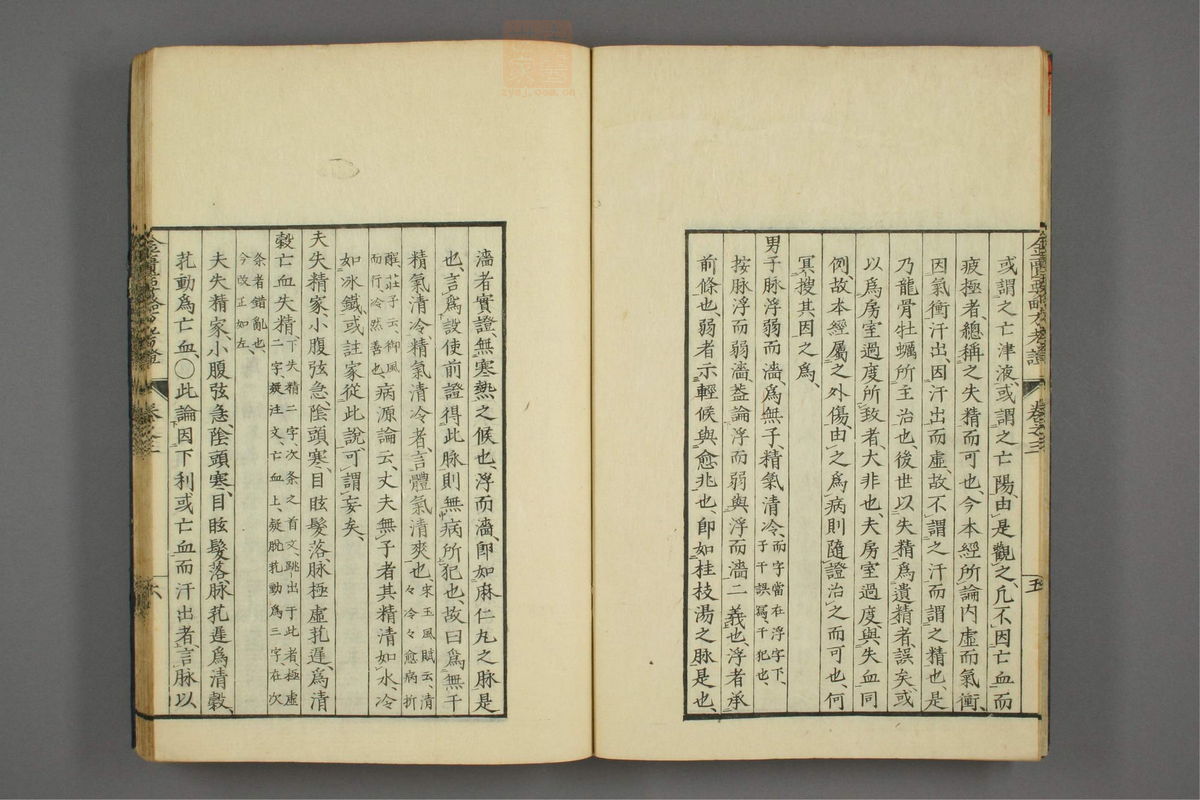 或謂之亡津液、或謂之亡陽、由是觀之、凡不因亡血而
疲極者、總稱之失精而可也、今本經所論、内虛而氣衝、
因氣衝汗出、因汗出而虛、故不謂之汗而謂之精也、是
乃龍骨牡蠣所主治也、後世以失精爲遺精者、誤矣、或
以爲房室過度所致者、大非也、夫房室過度與失血同
例、故本經屬之外傷、由之爲病則隨證治之而可也、何
冥搜其因之爲、
男子脉浮弱而濇、爲無子、精氣清冷、而字當在浮字下、子干誤寫、干犯也、
按脉浮而弱濇、蓋論浮而弱與、浮而濇二義也、浮者承
前條也、弱者示輕候與愈兆也、即如桂枝湯之脉是也、
濇者實證無寒熱之候也、浮而濇、即如麻仁丸之脉是
也、言爲設使前證得此脉則無病所犯也、故曰爲無干
精氣清冷、精氣清冷者、言體氣清爽也、宋玉風賦云清々冷々愈病折
酲、莊子云、御風而行、冷然善也、病源論云、丈夫無子者其精清如水、冷
如冰鐵、或註家從此說、可謂妄矣、
夫失精家、小腹弦急、陰頭寒、目眩髮落、脉極虛芤遲、爲清
穀亡血失精、下失精二字、次条之首文、跳出于此者、極虛二字、疑注文、亡血上、疑脫芤動爲三字在次
条者錯亂也、今改正如左、
夫失精家、小腹弦急、陰頭寒、目眩髮落、脉芤遲爲清穀、
芤動爲亡血、〇此論因下利或亡血而汗出者、言脉以
五
六